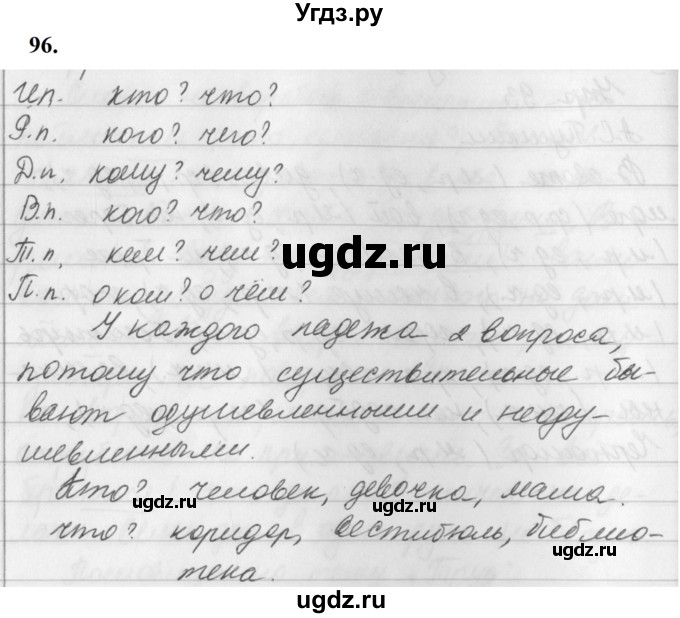 Угдз.ру
96.
И.п. кто? что?
Р.п. кого? чего?
Д.п. кому? чему?
В.п. кого? что?
Т.п. кем? чем?
ugdz.ru
П.п. о ком? о чём?
У каждого падежа 2 вопроса,
потому что существительные бы-
вают одушевленными и неоду-
шевленными.
Кто? человек, девочка, мама.
ugdz.ru
что? коридор, вестибюль, библио-
тека.
ugdz.ru